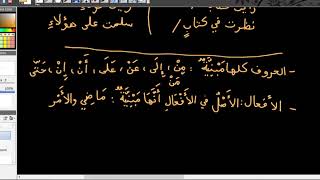 نظرت في كتابٍ / سلمت على هؤلاءِ
- الحروف كلها مَبْنِيَّةٌ: مِنْ، إِلَى، عَنْ، عَلَى، أَنْ، إِنْ، حَتَّى
مَنْ
- الأفعال: الأَصْلُ في الأَفْعَالِ أَنَّهَا مَبْنِيَّةٌ: مَاضِي والأَمْر